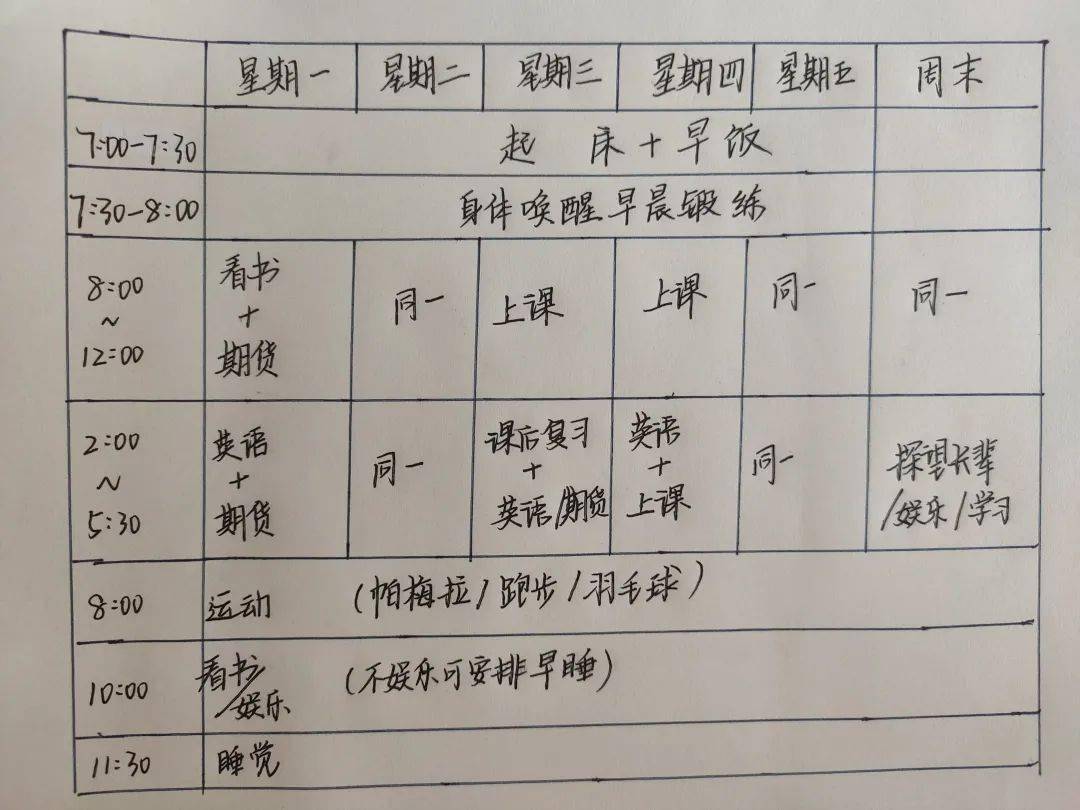 星期一 星期二 星期三 星期四 星期五 周末
7:00-7:30 起床+早饭
7:30-8:00 身体唤醒早晨锻练
8:00
~
12:00
看书
+
期货
同一
上课
上课
同一
同一
2:00
~
5:30
英语
+
期货
同一
课后复习
+
英语/期货
英语
+
上课
同一
探望长辈
/娱乐/学习
8:00 运动 (帕梅拉/跑步/羽毛球)
10:00
看书
/娱乐
(不娱乐可安排早睡)
11:30 睡觉